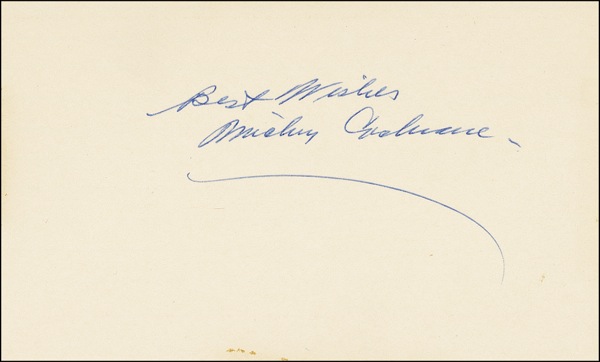 Best Wishes
Mickey Cochrane -